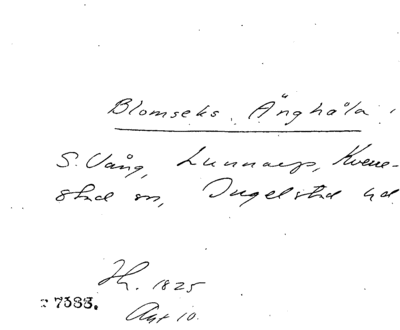 Blomseks Änghåla
S. Vång, Lunnarp, Kverre-
stad sn, Ingelstad hd
Jh. 1825
Akt 10.
7383.